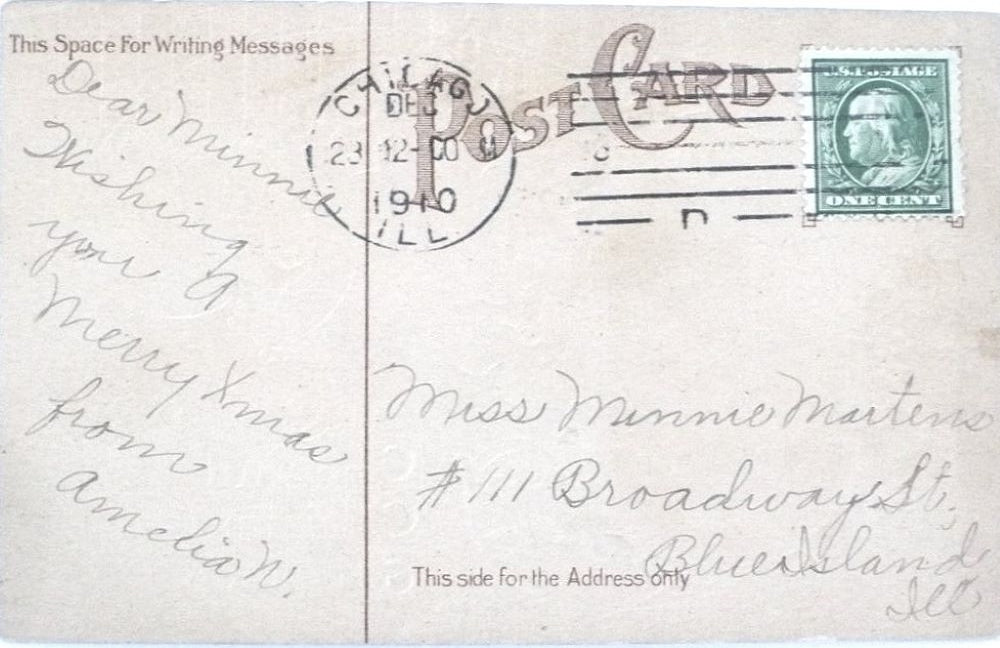 This Space For Writing Messages
Dear Minnie
Wishing
you A
Merry Xmas
from
Amelia W.
POST CARD
CHICAGO
DEC
23 12-00 M
1910
ILL.
U.S. POSTAGE
ONE CENT
Miss Minnie Martens
#111 Broadway St.
Blue Island
Ill
This side for the Address only